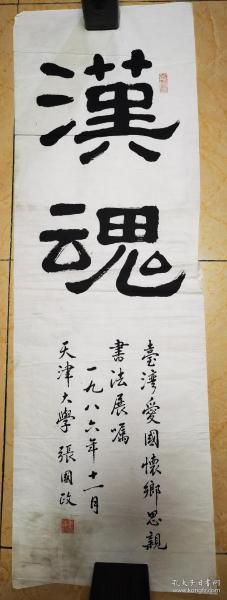 漢
魂
臺灣愛國懷鄉思親
書法展囑
一九八六年十一月
天津大學張國政
孔夫子旧书网